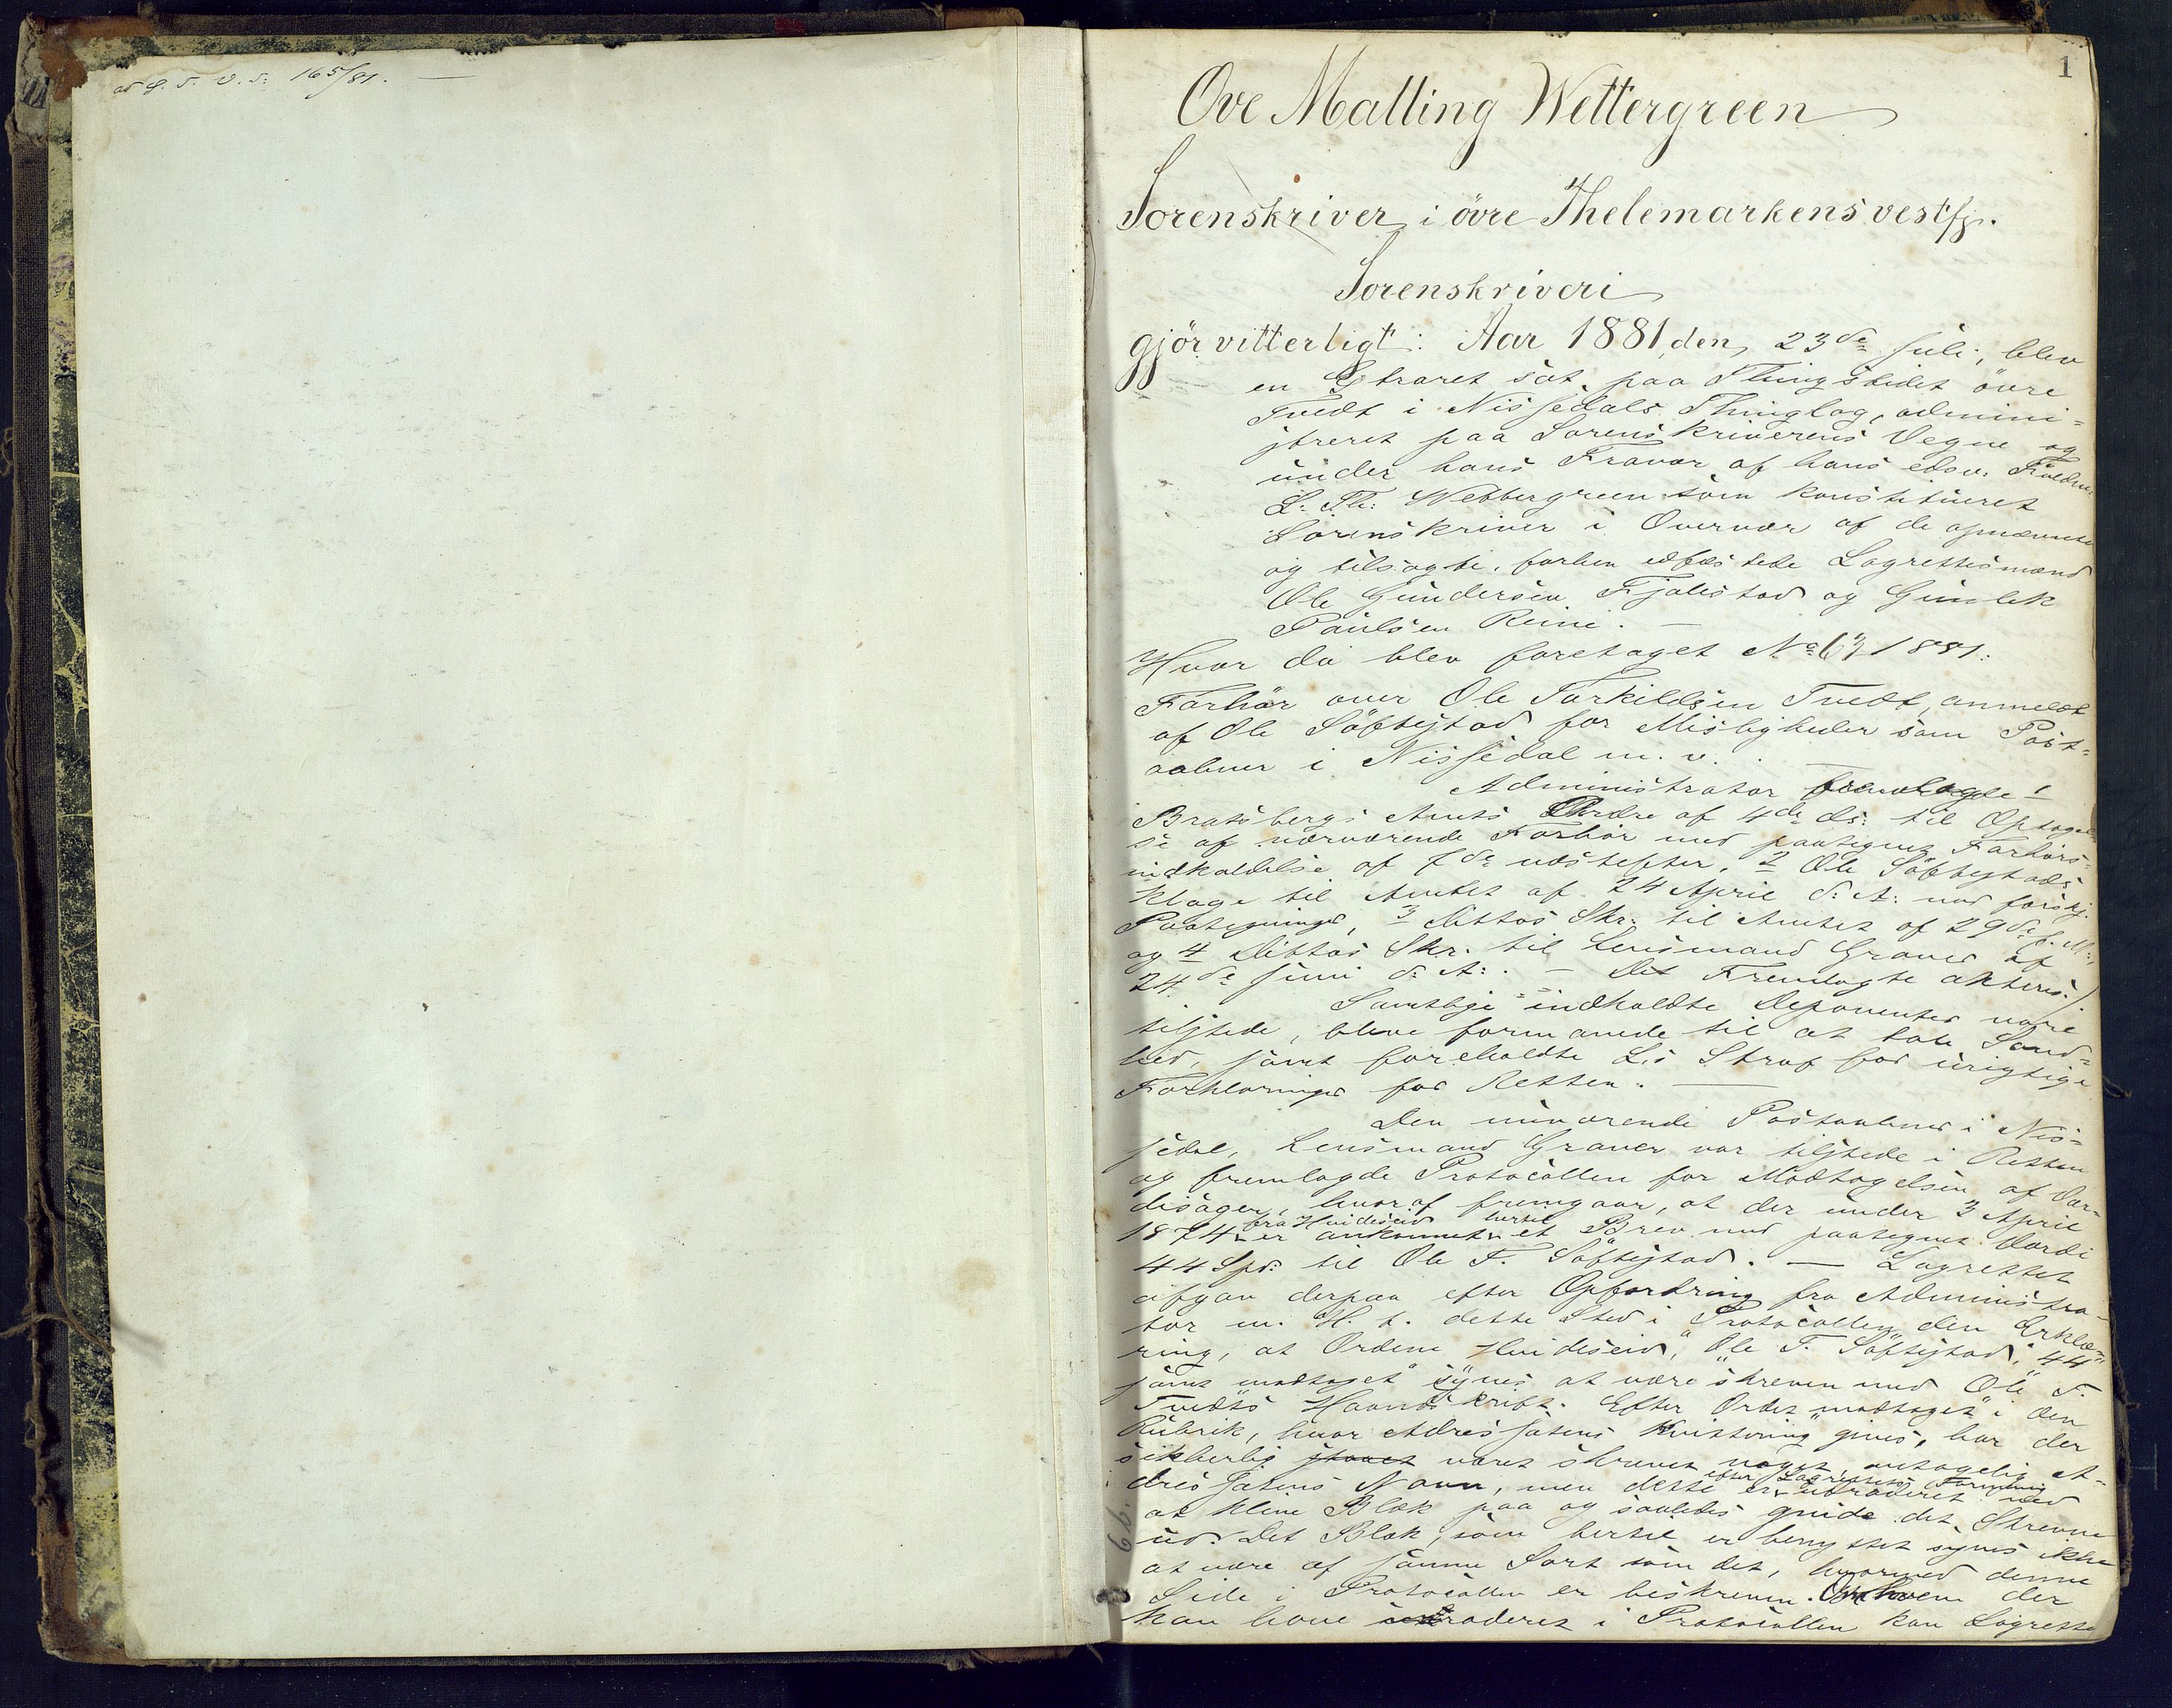 165/81. —
1
Ove Malling Wettergreen
Sorenskriver i övre Thelemarkens vestfj.
Sorenskriveri
gjör vitterligt: Aar 1881, den 23de Juli, blev
en Extraret sat paa Thingstedet övre
Tvedt i Nissedals Thinglag, admini-
streret paa Sorenskriverens Vegne og
under hans Fravær af hans edsv. Fuldm.
L. Th. Wettergreen som konstitueret
Sorenskriver i Overvær af de opnævnte
og tilsagte, forhen edfæstede Lagrettesmænd
Ole Gundersen Fjalestad og Gunlek
Paulsen Reine. —
Hvor da blev foretaget No 63 1881:
Forhör over Ole Torkildsen Tvedt, anmeldt
af Ole Söftestad for Misligheder som Post-
aabner i Nissedal m. v. —
Administrator fremlagde 1
Bratsbergs Amts Ordre af 4de ds. til Optagel-
se af nærværende Forhör med paategnet Forhörs-
indkaldelse af 7de næstefter, 2 Ole Söftestads
Klage til Amtet af 24 April d. A. med forskj.
Paategninger, 3 Dittos Skr. til Amtet af 29de f. M.,
og 4 Dittos Skr. til Lensmand Graver af
24de Juni d. A. — Det Fremlagte akteres./
Samtlige indkaldte Deponenter vare
tilstede, bleve formanede til at tale Sand-
hed, samt foreholdte L.s Straf for urigtige
Forklaringer for Retten. —
Den nuværende Postaabner i Nis-
sedal, Lensmand Graver var tilstede i Retten
og fremlagde Protocollen for Modtagelsen af Vær-
disager, hvoraf fremgaar, at der under 3 April
fra Hvideseid hertil
1874 er ankommet et Brev med paategnet Værdi
44 Spd. til Ole T. Söftestad. — Lagrettet
afgav derpaa efter Opfordring fra Administra-
tor m. H. t. dette Sted i Protocollen den Erklæ-
ring, at Ordene "Hvideseid", "Ole T. Söftestad", "44"
samt "modtaget" synes at være skreven med Ole T.
Tvedts Haandskrift. Efter Ordet "modtaget" i den
Rubrik, hvor Adressatens Kvittering gives, har der
sikkerlig staaet været skrevet noget, antagelig A-
efter Lagrettets Formening
dressatens Navn, men dette er udraderet ved
at kline Blæk paa og saaledes gnide det Skrevne
ud. Det Blæk, som hertil er benyttet synes ikke
at være af samme Sort som det, hvormed denne
Side i Protocollen er beskreven. Om hvem der
kan have udraderet i Protocollen kan Lagrettet